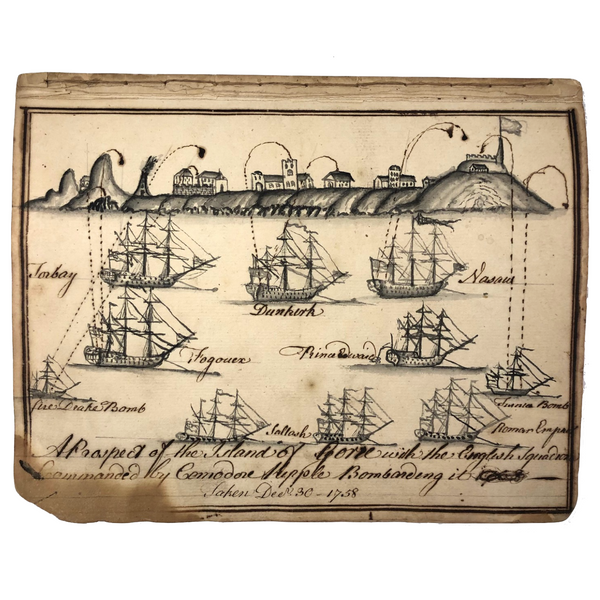 Torbay
Nasau
Dunkirk
Fogouex
Prince Edward
fire Drake Bomb
Furnia Bomb
Saltash
Roman Emp
A Prospect of the Island of Goree with the English Squadron
Commanded by Comodore Kepple Bombarding it
Taken Decr. 30 - 1758